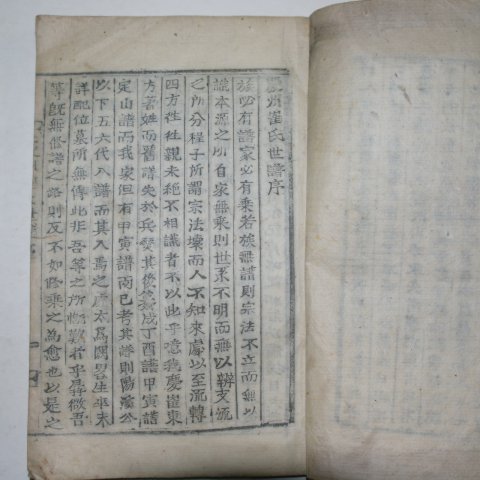 州崔氏世譜序
族必有譜家必有乘若族無譜則宗法不立而無以
識本源之所自家無乘則世系不明而無以辨支流
之所分程子所謂宗法壞而人不知來處以至流轉
四方往往親未絶不相識者不以此乎噫我慶崔東
方著姓而舊譜失於兵燹其後成丁酉譜甲寅譜
定山譜而我家但有甲寅譜而已考其譜則陽溪公
以下五六代入譜而其入焉之庶太爲闊略生卒未
詳配位墓所無傳此非吾等之所慨歎者乎屢欲吾
等旣無修譜之路則反不如修乘之爲愈也以是之